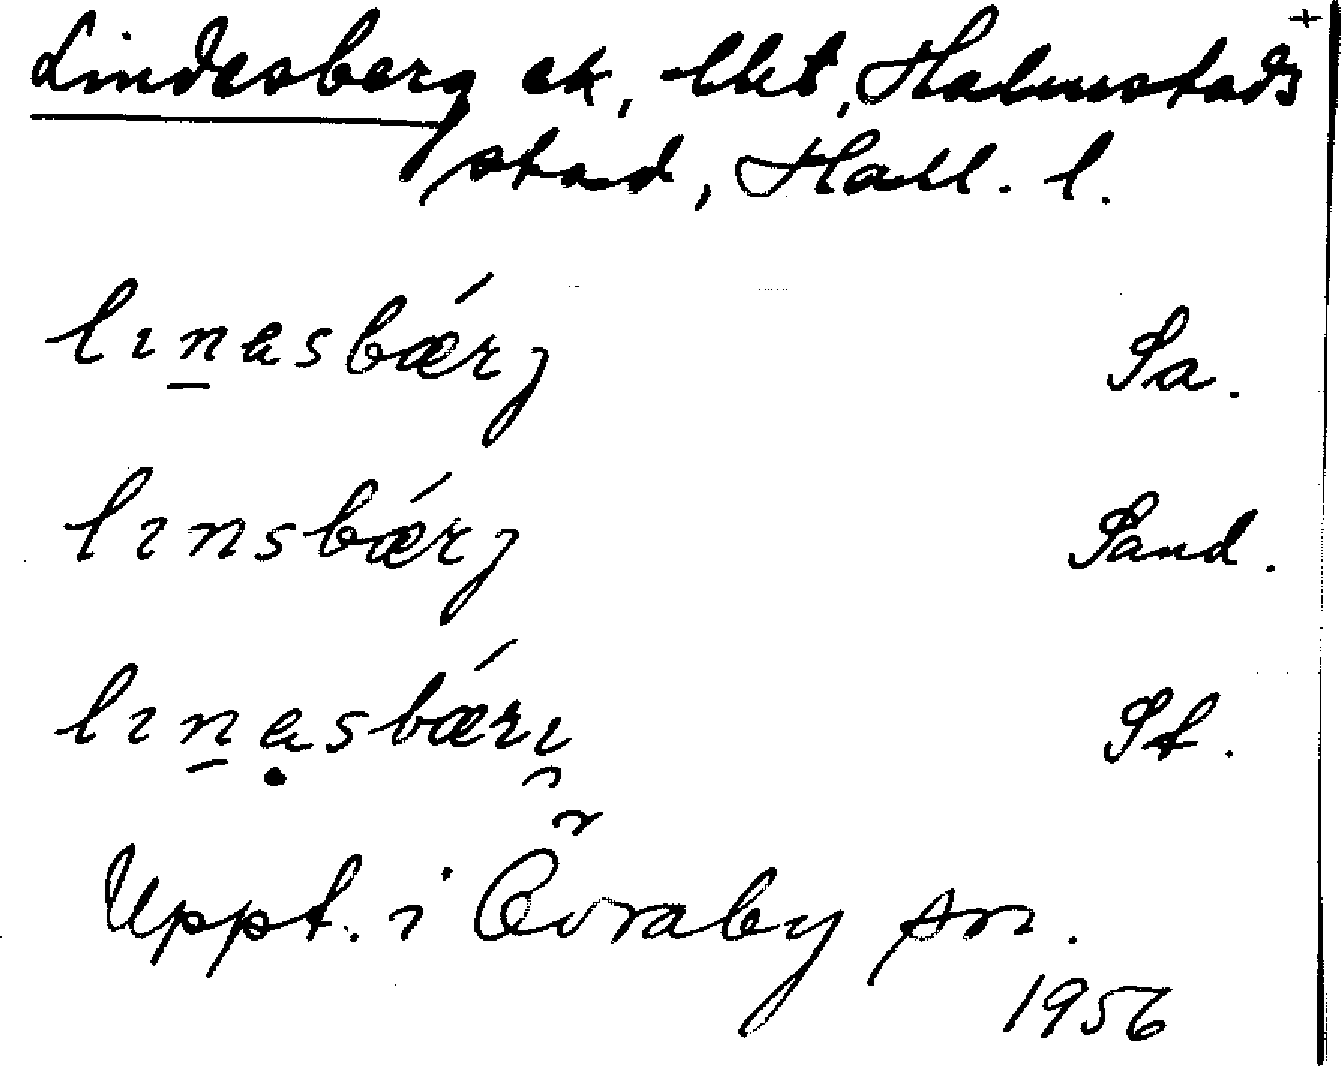 +
Lindesberg ek, lht, Halmstads
stad, Hall. l.
lınəsbǽrj Sa.
lınsbǽrj Sand.
lınəsbǽrı St.
Uppt. i Övraby sn.
1956